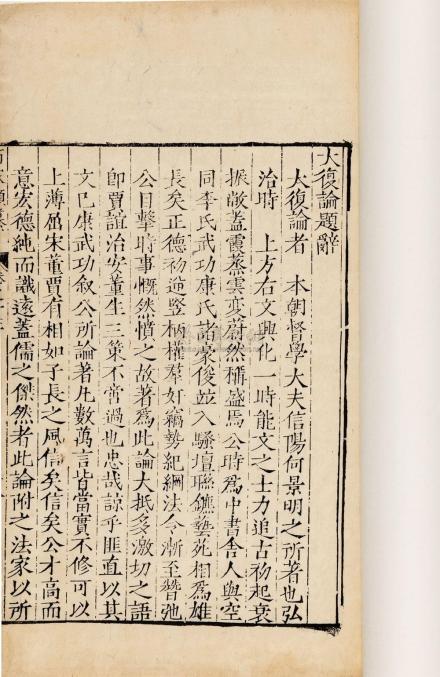 大復論題辭
大復論者　本朝督學大夫信陽何景明之所著也弘
治時　上方右文興化一時能文之士力追古初起衰
振敝蓋霞蒸雲变蔚然稱盛焉公時爲中書舍人與空
同李氏武功康氏諸豪俊並入騷壇聯鑣藝苑相爲雄
長矣正德初逆竪柄權羣奸竊勢紀綱法令漸至朁弛
公目擊時事慨然憤之故著爲此論大抵多激切之語
卽賈誼治安董生三策不啻過也忠哉諒乎匪直以其
文已康武功叙公所論著凡數萬言皆當實不修可以
上薄屈宋董賈有相如子長之風信矣信矣公才高而
意宏德純而識遠蓋儒之傑然者此論附之法家以所